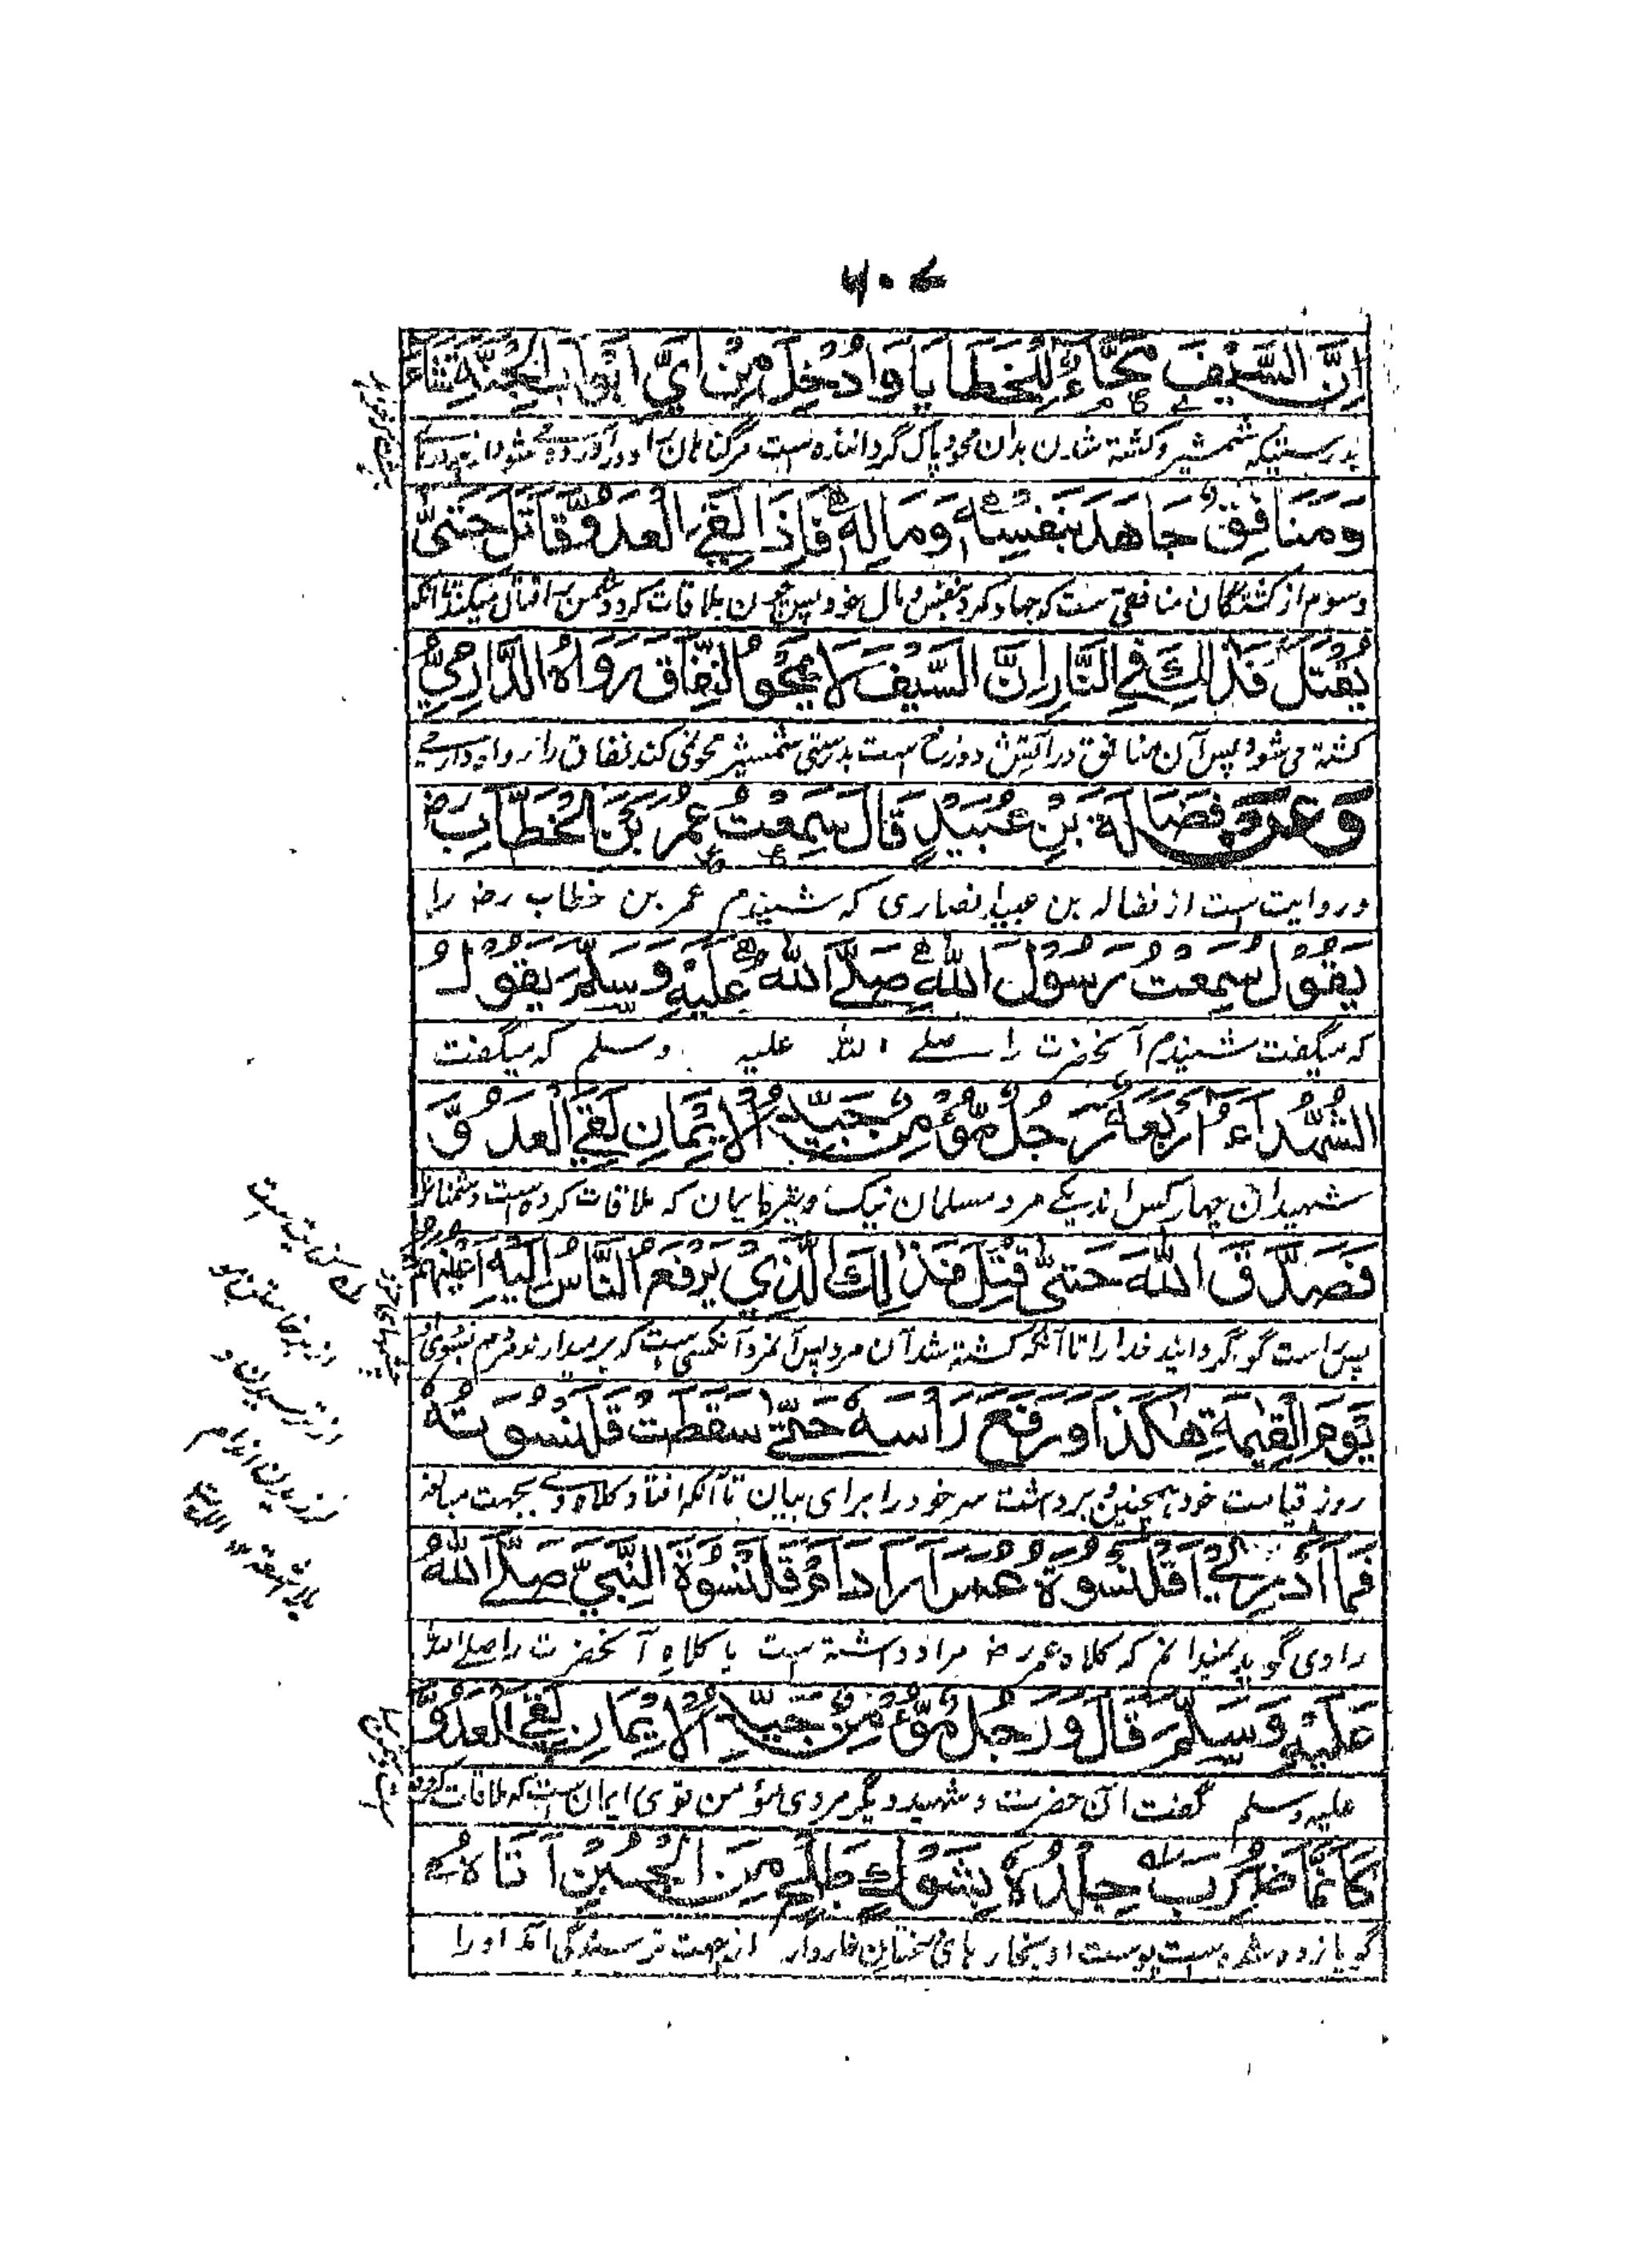 إِنَّ السَّيْفَ مَحَّاءٌ لِلْخَطَايَا وَأُدْخِلَ مِنْ أَيِّ أَبْوَابِ الْجَنَّةِ شَاءَ
بدرستیکه شمشیر و کشته شدن بدان محو و پاک گرداننده است مر گناهان را و درآورده می شود از
وَمُنَافِقٌ جَاهَدَ بِنَفْسِهِ وَمَالِهِ فَإِذَا لَقِيَ الْعَدُوَّ قَاتَلَ حَتَّى
و سوم از کشتگان منافقی ست که جهاد کرد بنفس و مال خود پس چون ملاقات کرد دشمن را قتال میکند تا آنکه
يُقْتَلَ فَذٰلِكَ فِي النَّارِ إِنَّ السَّيْفَ لَا يَمْحُو النِّفَاقَ رَوَاهُ الدَّارِمِيُّ
کشته می شود پس آن منافق در آتش دوزخ است بدرستی شمشیر محو نمی کند نفاق را رواه دارمی
وَعَنْ فَضَالَةَ بْنِ عُبَيْدٍ قَالَ سَمِعْتُ عُمَرَ بْنَ الْخَطَّابِ رض
و روایت ست از فضاله بن عبید انصاری که شنیدم عمر بن خطاب رض را
يَقُولُ سَمِعْتُ رَسُولَ اللّٰهِ صَلَّى اللّٰهُ عَلَيْهِ وَسَلَّمَ يَقُولُ
که میگفت شنیدم آنحضرت را صلے اللہ علیه وسلم که میگفت
الشُّهَدَاءُ أَرْبَعَةٌ رَجُلٌ مُؤْمِنٌ جَيِّدُ الْإِيمَانِ لَقِيَ الْعَدُوَّ
شهیدان چهار کس اند یکے مرد مسلمان نیک ایمان که ملاقات کرده است دشمنان را
فَصَدَّقَ اللّٰهَ حَتَّى قُتِلَ فَذٰلِكَ الَّذِي يَرْفَعُ النَّاسُ إِلَيْهِ أَعْيُنَهُمْ
پس راست گو گردانید خدا را تا آنکه کشته شد آن مرد پس آنمرد آنکسی ست که بر میدارند مردم بسوی او
يَوْمَ الْقِيٰمَةِ هٰكَذَا وَرَفَعَ رَأْسَهُ حَتّٰى سَقَطَتْ قَلَنْسُوَتُهُ
روز قیامت خود همچنین و برداشت سر خود را برای بیان تا آنکه افتاد کلاه وے بجهت مبالغه
فَمَا أَدْرِي أَقَلَنْسُوَةَ عُمَرَ أَرَادَ أَمْ قَلَنْسُوَةَ النَّبِيِّ صَلَّى اللّٰهُ
راوی گوید نمیدانم که کلاه عمر رض مراد داشته است یا کلاه آنحضرت را صلے اللہ
عَلَيْهِ وَسَلَّمَ قَالَ وَرَجُلٌ مُؤْمِنٌ جَيِّدُ الْإِيمَانِ لَقِيَ الْعَدُوَّ
علیه وسلم گفت آن حضرت و شهید دیگر مردی مؤمن قوی ایمان ست که ملاقات کرد
كَأَنَّمَا ضُرِبَ جِلْدُهُ بِشَوْكِ طَلْحٍ مِنَ الْجُبْنِ أَتَاهُ
گویا زده شده است پوست او بخار های درختان خاردار از جهت ترسندگی آمد او را